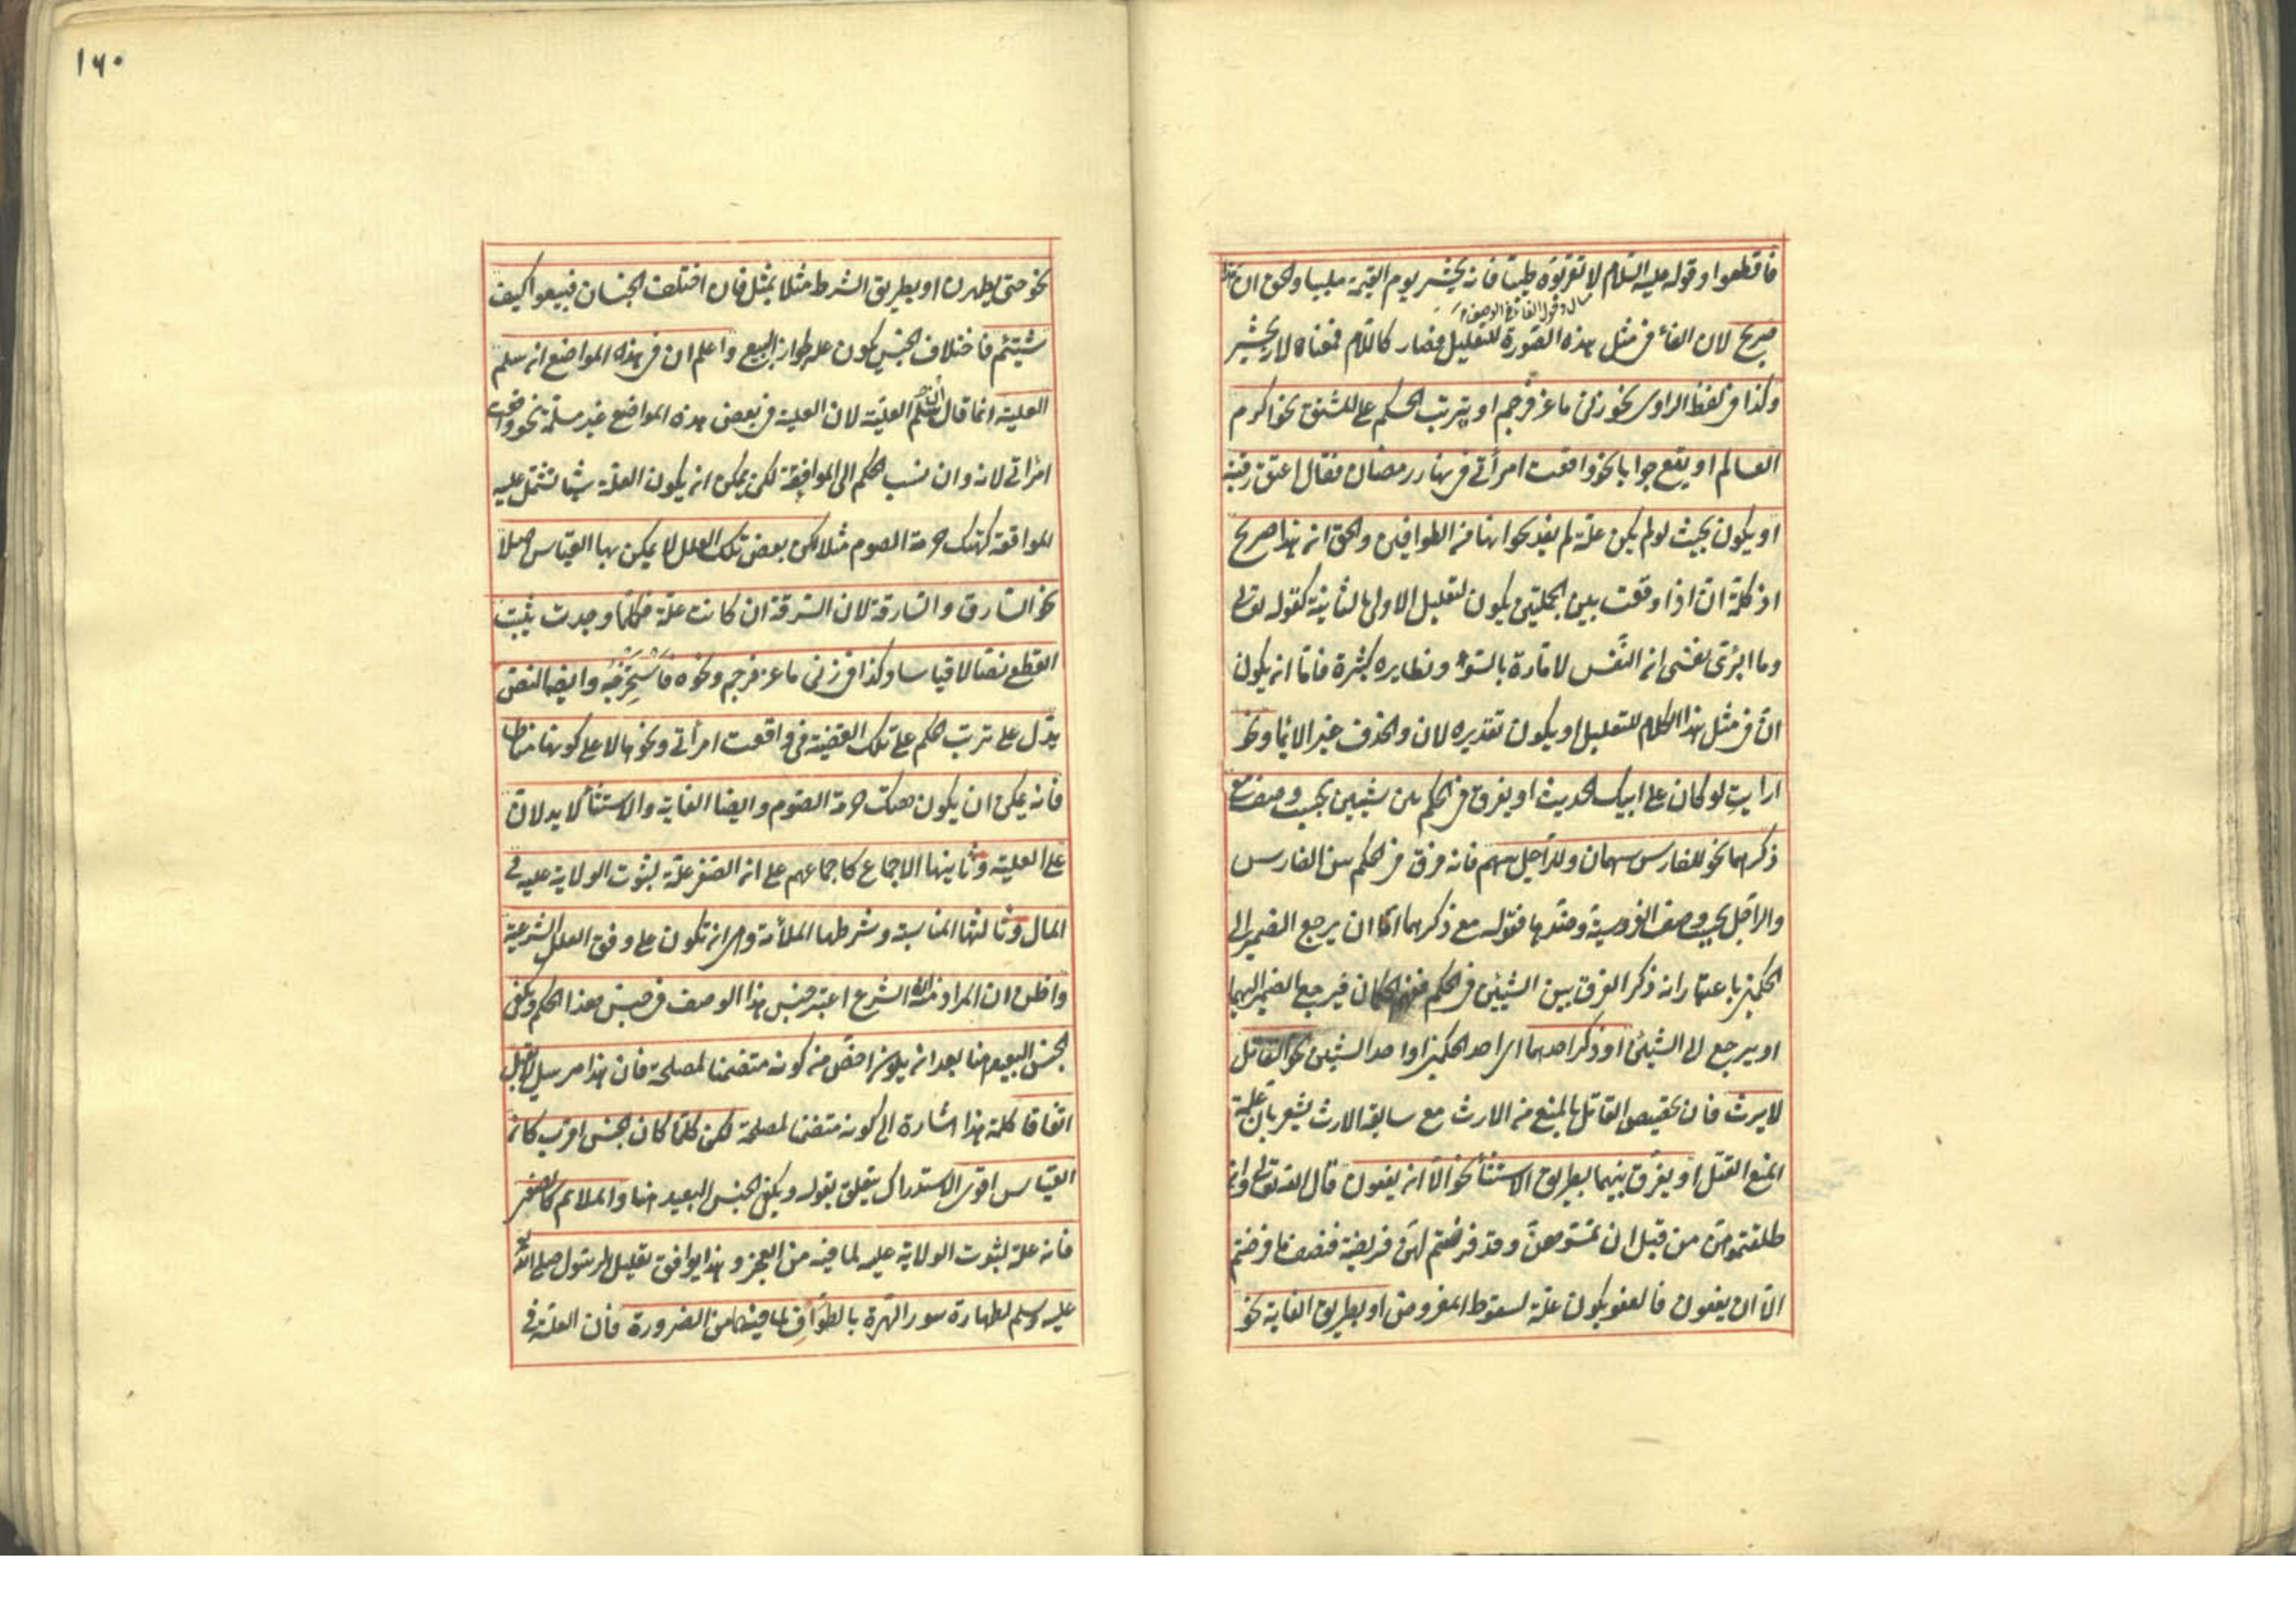 فاقطعوا وقوله عليه السلام لا تقربوه طيبا فانه يحشر يوم القيمة ملبيا والحق ان هذا
صريح لان الفاء فى مثل هذه الصورة للتعليل فصار كاللام فمعناه لانه يحشر
وكذا فى لفظ الراوى نحو زنى ماعز فرجم او يترتب الحكم على المشتق نحو اكرم
العالم او يقع جوابا نحو واقعت امرأتى فى نهار رمضان فقال اعتق رقبة
او يكون بحيث لو لم يكن علة لم يفد نحو انها من الطوافين والحق انه هذا صريح
اذ كلمة ان اذا وقعت بين الجملتين يكون لتعليل الاولى بالثانية كقوله تعالى
وما ابرئ نفسى ان النفس لامارة بالسوء ونظايره كثيرة فاما ان يكون
ان فى مثل هذا الكلام للتعليل او يكون تقديره لان والحذف غير الايماء ونحو
ارايت لو كان على ابيك الحديث او يفرق فى الحكم بين شيئين بحسب وصف مع
ذكرهما نحو للفارس سهمان وللراجل سهم فانه فرق فى الحكم بين الفارس
والراجل بحسب وصف الفروسية وضدها فقوله مع ذكرهما اما ان يرجع الضمير الى
الحكمين باعتبار انه ذكر الفرق بين الشيئين فى الحكم فيرجع الضمير اليهما
او يرجع الى الشيئين او ذكر احدهما اى احد الحكمين او احد الشيئين نحو القاتل
لا يرث فان تخصيص القاتل بالمنع من الارث مع سابقة الارث يشعر بان علية
المنع القتل او يفرق بينهما بطريق الاستثناء نحو الا ان يعفون قال الله تعالى وان
طلقتموهن من قبل ان تمسوهن وقد فرضتم لهن فريضة فنصف ما فرضتم
الا ان يعفون فالعفو يكون علة لسقوط المفروض او بطريق الغاية نحو
١٦٠
نحو حتى يطهرن او بطريق الشرط مثلا بمثل فان اختلف الجنسان فبيعوا كيف
شيتم فاختلاف الجنس يكون علة لجواز البيع واعلم ان فى هذه المواضع ان سلم
العلية انما قال ان سلم العلية لان العلية فى بعض هذه المواضع غير مسلمة نحو واقعت
امرأتى لانه وان نسب الحكم الى المواقعة لكن يمكن ان يكون العلة شيئا تشتمل عليه
المواقعة كهتك حرمة الصوم مثلا لكن بعض تلك العلل لا يمكن بها القياس اصلا
نحو السارق والسارقة لان السرقة ان كانت علة فكلما وجدت يثبت
القطع نصا لا قياسا وكذا فى زنى ماعز فرجم ونحوه وايضا النص
يدل على ترتب الحكم على تلك القضية فى واقعت امرأتى ونحوها لا على كونها مناطا
فانه يمكن ان يكون هتك حرمة الصوم وايضا الغاية والاستثناء لا يدلان
على العلية وثانيها الاجماع كاجماعهم على ان الصغر علة لثبوت الولاية عليه فى
المال وثالثها المناسبة وشرطها الملائمة وهى ان تكون على وفق العلل الشرعية
واظن ان المراد منه ان الشرع اعتبر جنس هذا الوصف فى جنس هذا الحكم ويكفى
الجنس البعيد هنا بعد ان يكون اخص من كونه متضمنا لمصلحة فان هذا مرسل لا يقبل
اتفاقا كلمة هذا اشارة الى كونه متضمنا لمصلحة لكن كلما كان الجنس اقرب كان
القياس اقوى الاستدراك يتعلق بقوله ويكفى الجنس البعيد هنا والملائم كالصغر
فانه علة لثبوت الولاية عليه لما فيه من العجز وهذا يوافق تعليل الرسول صلى الله
عليه وسلم لطهارة سور الهرة بالطواف لما فيها من الضرورة فان العلة فى